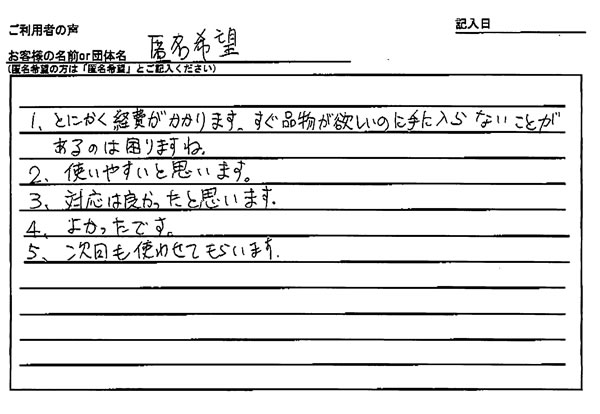 ご利用者の声
記入日
お客様の名前or団体名 匿名希望
(匿名希望の方は「匿名希望」とご記入ください)
1、とにかく経費がかかります。すぐ品物が欲しいのに手に入らないことが
あるのは困りますね。
2、使いやすいと思います。
3、対応は良かったと思います.
4、よかったです。
5、次回も使わせてもらいます.